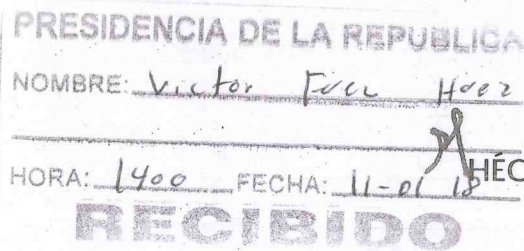 PRESIDENCIA DE LA REPUBLICA
NOMBRE: Victor
HÉC
HORA: 1400 FECHA: 11-01 18
RECIBIDO